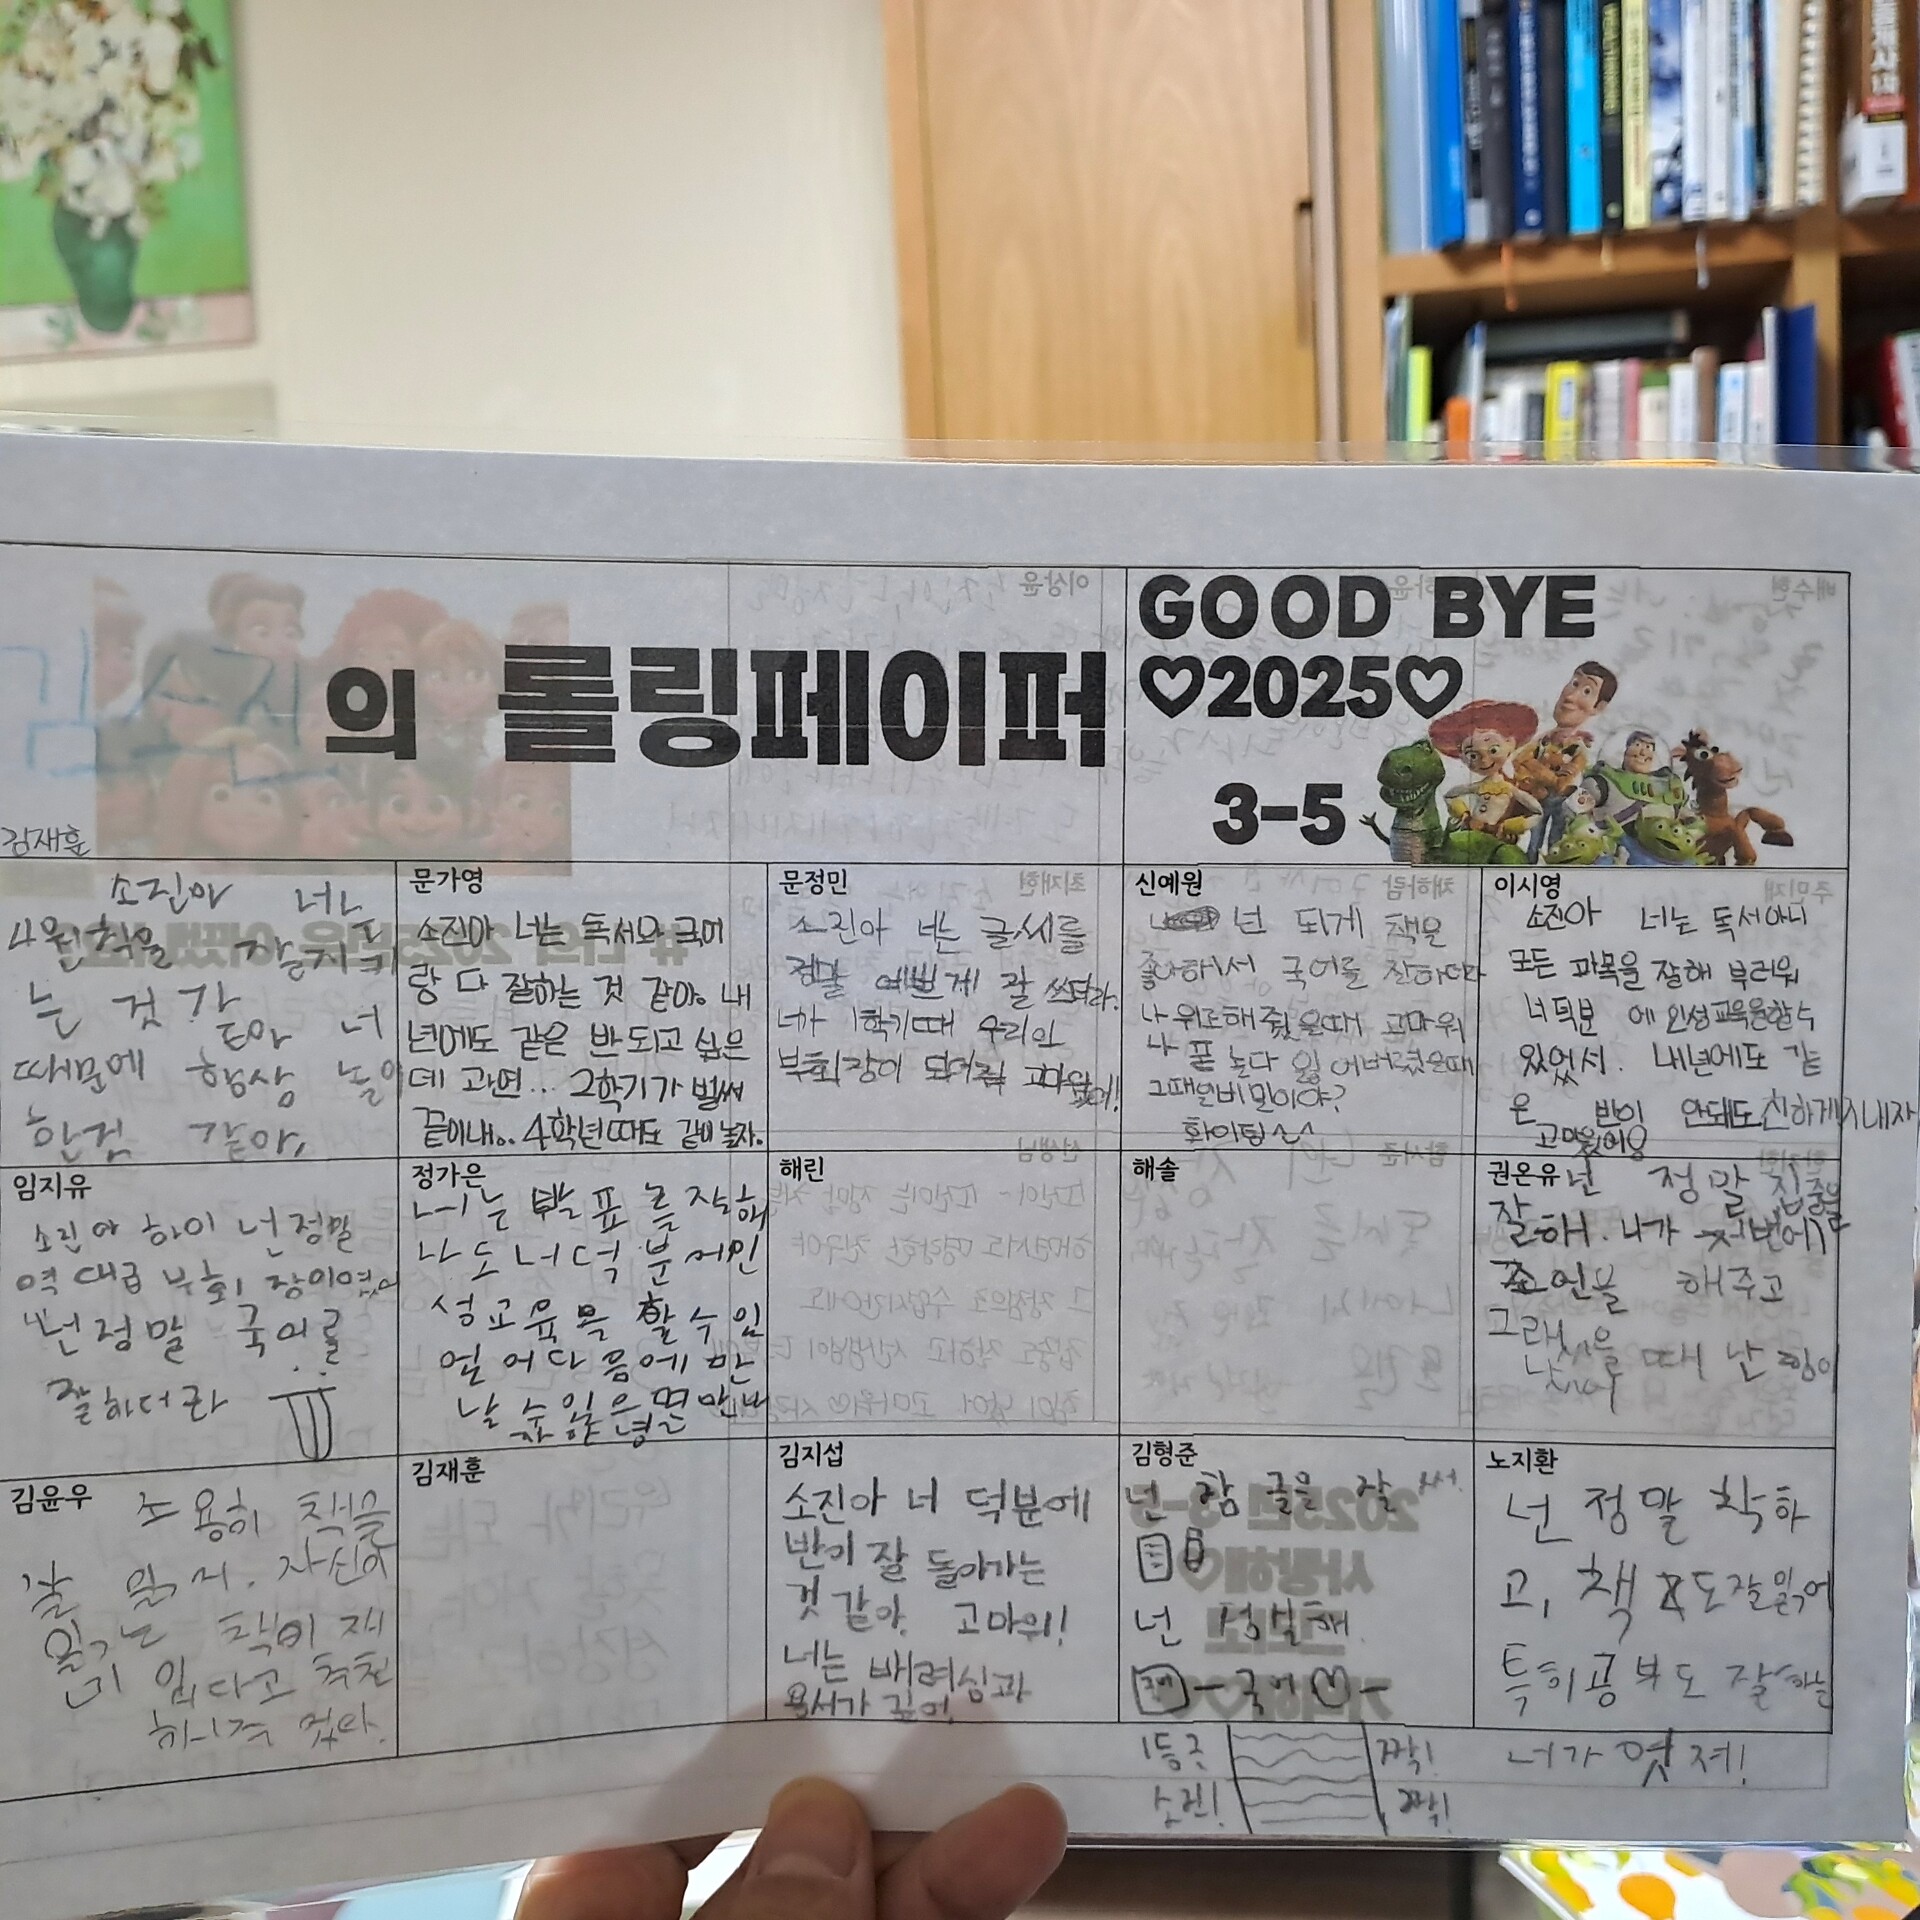 의 롤링페이퍼
GOOD BYE
♡2025♡
3-5
김재훈
소진아 너는
4원칙을 잘지키
는 것 같
아 너
때문에 항상 놀이
한검 같아,
문가영
소진아 너는 독서와 국어
랑 다 잘하는 것 같아. 내
년에도 같은 반 되고 싶은
데 과연... 2학기가 벌써
끝이내.. 4학년때도 같이 놀자.
문정민
소진아 너는 글씨를
정말 예쁘게 잘 쓰더라.
너가 1학기때 우리의
부회장이 되어줘 고마웠어!
신예원
넌 되게 책을
좋아해서 국어를 잘하더라
나 위로해 줬을때 고마워
나 폰 놓다 잃어버렸을때
그때일비밀이야?
화이팅^^
이시영
소진아 너는 독서아니
모든 과목을 잘해 부러워
너덕분에 인성교육을할수
있었어. 내년에도 같
은 반이 안돼도 친하게지내자
고마웠어용
임지유
소진아 하이 넌 정말
역대급 부회장이였어
넌 정말 국어를
잘하더라
정가은
너는 발표를 잘해
나도 너덕분에인
성교육을 할수있
었어 다음에 만
날 수 있으면 만나
자 안녕
해린
해솔
권온유
넌 정말 집중을
잘해. 너가 저번에
조언을 해주고
그랬을
때 난 힘이
났어
김윤우
조용히 책을
잘 읽지. 자신이
읽는 책이 재
미있다고 추천
하는것 같다.
김재훈
김지섭
소진아 너 덕분에
반이 잘 돌아가는
것 같아. 고마워!
너는 배려심과
용서가 깊어.
김형준
넌 참 글을 잘 써.
넌 성실해.
국어♡
1등급
소진!
짝!
짝!
노지환
넌 정말 착하
고, 책도 잘읽어
특히공부도 잘하는
너가 멋져!